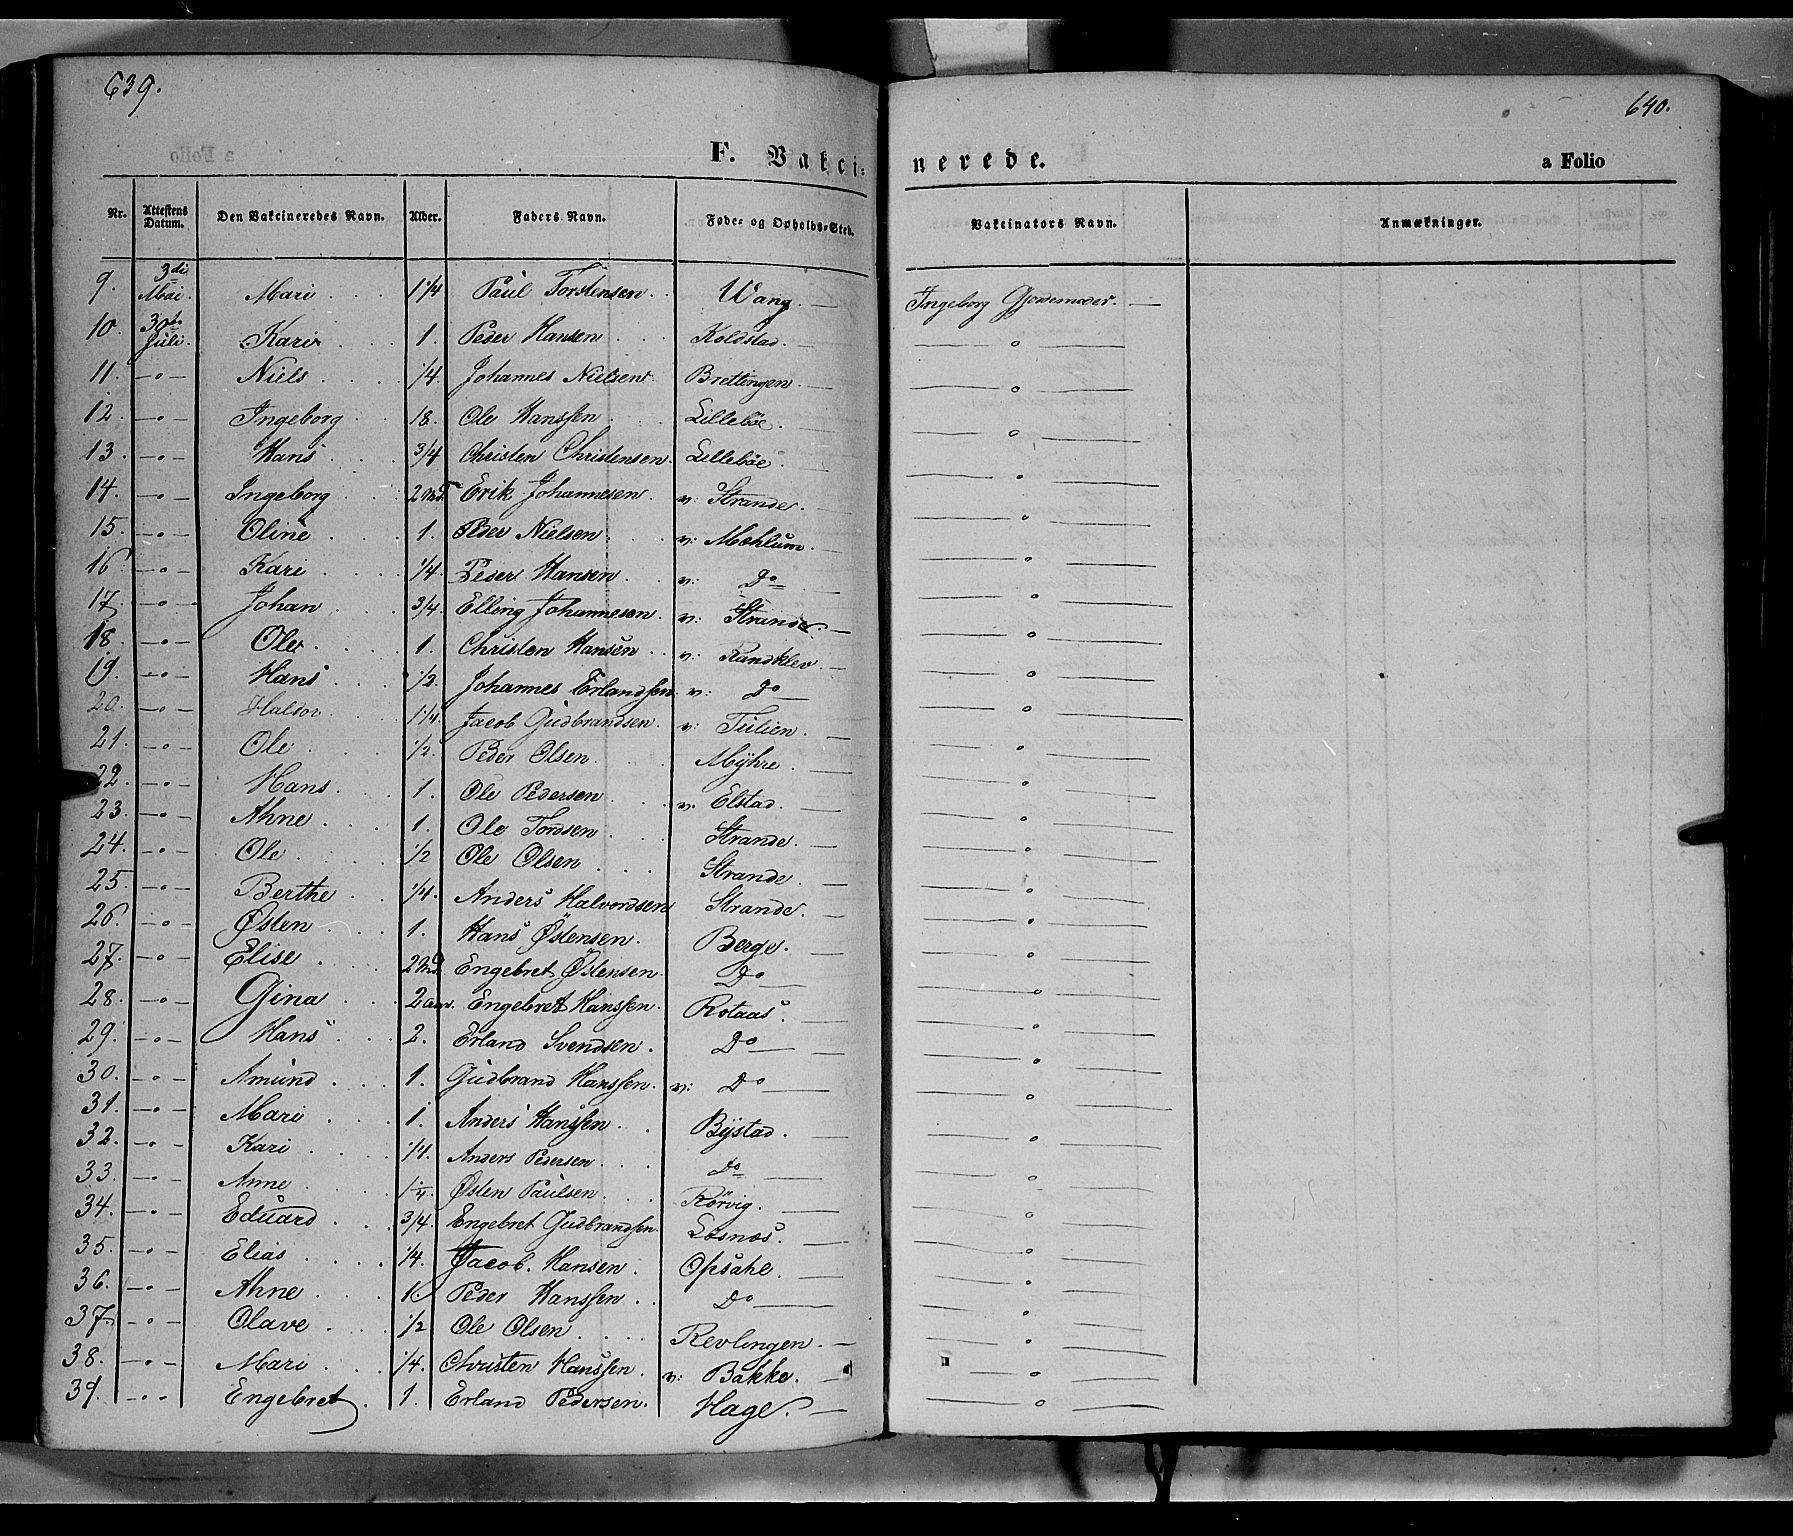 639.
640.
F. Vakci-
nerede.
a Folio
Nr. Attestens Datum. Den Vakcineredes Navn. Alder. Faders Navn. Føde- og Opholds-Sted. Vakcinators Navn. Anmærkninger.
9. 3di Mai. Mari 1 1/4 Paul Torstensen. Wang. Ingeborg Gjordemoder.
10. 30te Juli. Kari 1. Peder Hansen Koldstad. — o —
11. - o - Niels 1/4. Johannes Nielsen Brettingen. — o —
12. - o - Ingeborg 18. Ole Hanssen Lillebøe. — o —
13. - o - Hans 3/4 Christen Christensen. Lillebøe. — o —
14. - o - Ingeborg 2 Md. Erik Johannesen. v: Strande. — o —
15. - o - Oline 1. Peder Nielsen. v: Mæhlum. — o —
16. - o - Kari 1/4 Peder Hansen. v: Do — o —
17. - o - Johan 3/4. Elling Johannesen. v: Strande. — o —
18. - o - Ole 1. Christen Hansen v: Randklev. — o —
19. - o - Hans 1/2. Johannes Erlandsen. v: Do — o —
20. - o - Haldor 1 1/4. Jacob Gudbrandsen. v: Tulien. — o —
21. - o - Ole 1/2. Peder Olsen. Myhre. — o —
22. - o - Hans. 1. Ole Pedersen v. Elstad. — o —
23. - o - Ahne 1. Ole Tordsen Strande. — o —
24. - o - Ole 1/2 Ole Olsen Strande. — o —
25. - o - Berthe 1/4. Anders Halvordsen Strande. — o —
26. - o - Østen 1. Hans Østensen. Berge. — o —
27. - o - Elise 2 Md. Engebret Østensen. Do — o —
28. - o - Gina 2 aar. Engebret Hanssen. Rotaas. — o —
29. - o - Hans 2. Erland Svendsen. Do — o —
30. - o - Amund 1. Gudbrand Hanssen. v: Do — o —
31. - o - Mari 1. Anders Hanssen. Bystad. — o —
32. - o - Kari 1/4. Anders Pedersen Do — o —
33. - o - Anne 1 1/4. Østen Paulsen. Rørvig. — o —
34. - o - Eduard 3/4. Engebret Gudbrandsen. Losnæs. — o —
35. - o - Elias 1/4. Jacob. Hansen. Opsahl. — o —
36. - o - Ahne 1. Peder Hanssen. Do — o —
37. - o - Olave 1/2 Ole Olsen Revlingen. — o —
38. - o - Mari 1/4. Christen Hanssen. v: Bakke. — o —
39. - o - Engebret. 1. Erland Pedersen. Hage. — o —